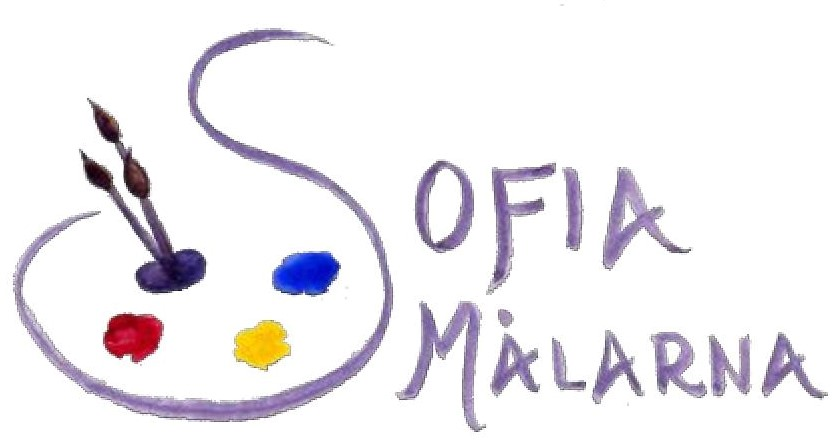 SOFIA
MÅLARNA